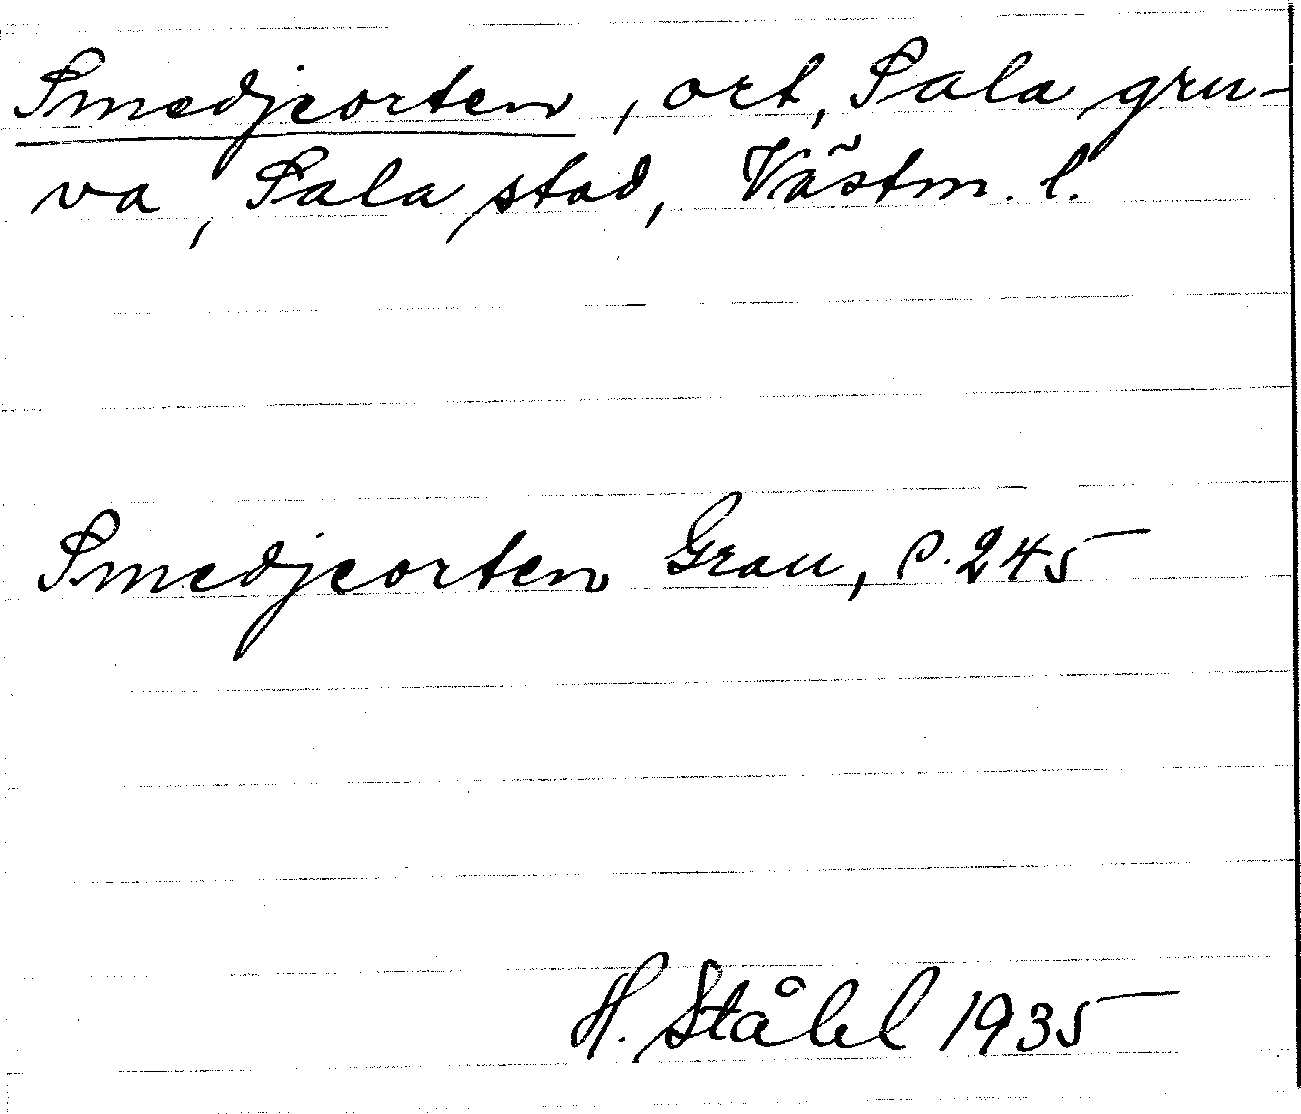 Smedjeorten, ort, Sala gru-
va, Sala stad, Västm. l.
Smedjeorten Grau, s. 245
H. Ståhl 1935